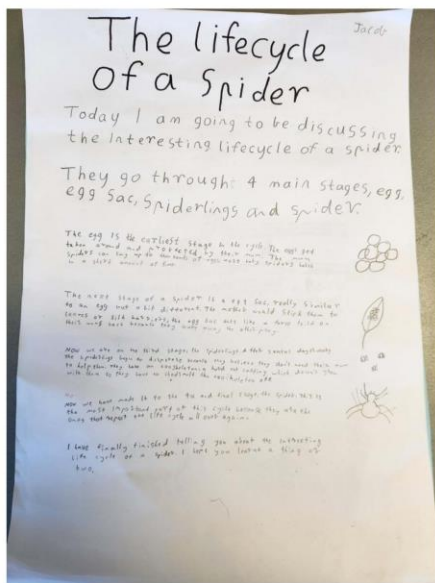 Jacob
The lifecycle
of a Spider
Today I am going to be discussing
the interesting lifecycle of a spider.
They go through: 4 main stages, egg,
egg sac, Spiderlings and spider.
The egg is the earliest stage in the cycle. The eggs get
taken around and protected by their mum. The mum
spiders can lay up to thousands of eggs
in a short amount of time
The next stage of a spider is a egg sac, really similar
to an egg but a bit different. The mother would stick them to
the egg sac acts like a
because they
Now we are on the third stage, the spiderlings. A
the spiderlings begin to because they believe they don't need their mum
to help them. They have an exoskeleton a which doesn't grow
with them so they have to the exoskeleton off.
Now we have made it to the and final stage, the spider. This is
the most important part of this cycle because they are the
ones that repeat the life cycle all over again.
I have finally finished telling you about the interesting
life cycle of a spider. I hope you learnt a thing or
two.